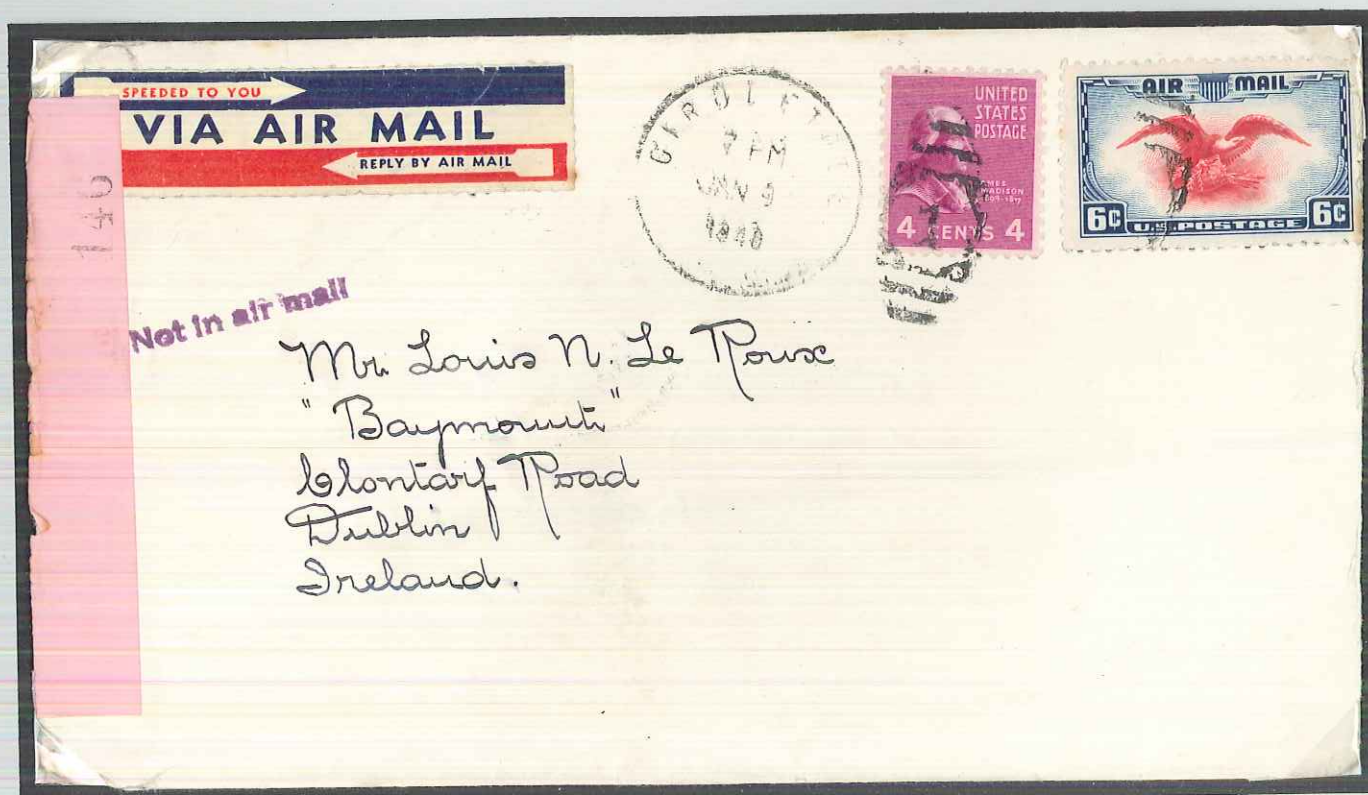 SPEEDED TO YOU
VIA AIR MAIL
REPLY BY AIR MAIL
140
7 PM
JAN 9
1940
UNITED
STATES
POSTAGE
JAMES
MADISON
1809-1817
4 CENTS 4
AIR MAIL
6¢ U.S. POSTAGE 6¢
Not in air mail
Mr. Louis N. Le Roux
"Baymount"
Clontarf Road
Dublin
Ireland.